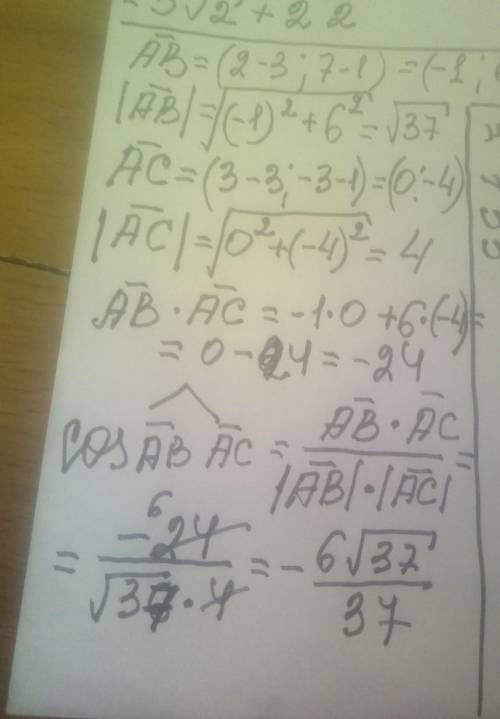 -3√2 + 2 2
AB̅ = (2-3; 7-1) = (-1;
|AB̅| = √((-1)² + 6²) = √37
AC̅ = (3-3; -3-1) = (0; -4)
|AC̅| = √(0² + (-4)²) = 4
AB̅ · AC̅ = -1·0 + 6·(-4) =
= 0 - 24 = -24
cos AB̅ AC̅ = (AB̅ · AC̅) / (|AB̅| · |AC̅|) =
= -24 6 / (√37 · 4) = - 6√37 / 37